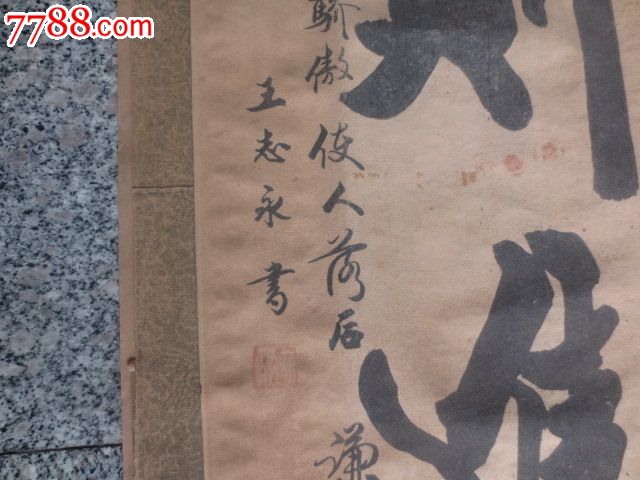 7788.com
则
进
骄傲使人落后
谦
王志永书